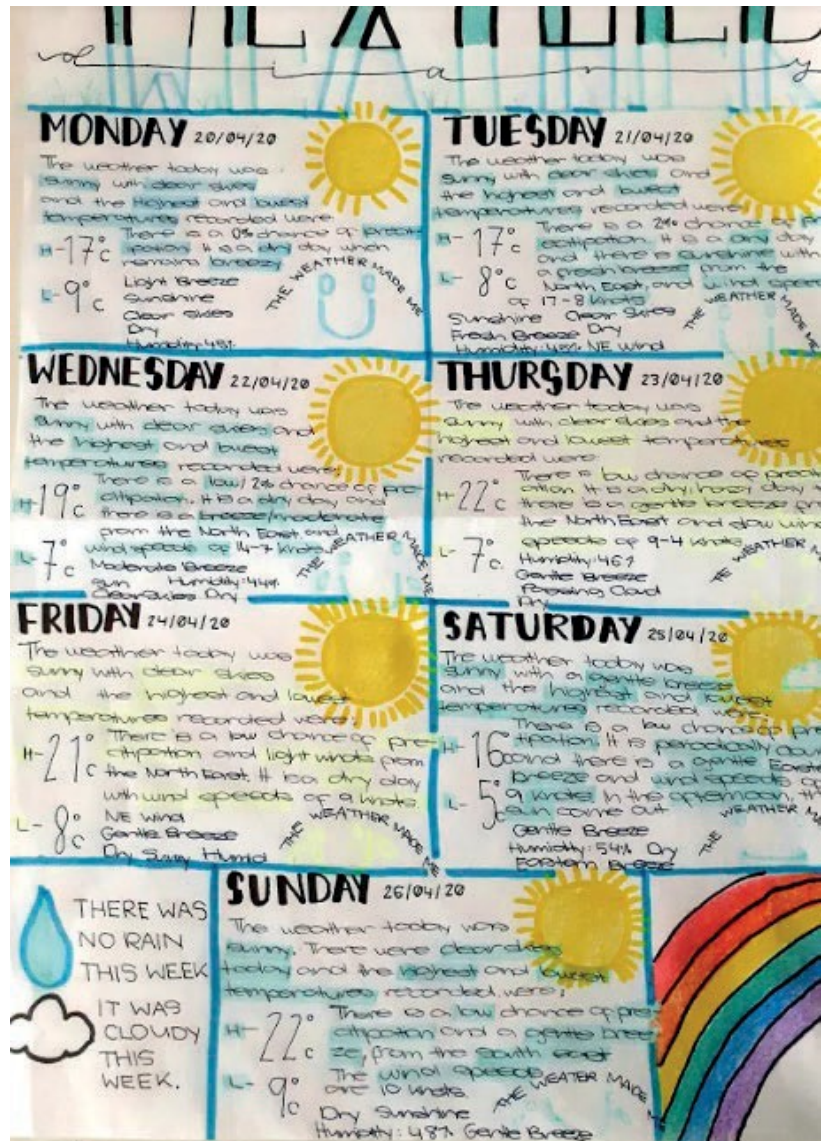 WEATHER
diary
MONDAY 20/04/20
The weather today was
sunny with clear skies
and the highest and lowest
temperatures recorded were:
There is a 0% chance of precit-
ipation. It is a dry day when
remains breezy
H-17°c
L-9°c
Light Breeze
Sunshine
Clear Skies
Dry
Humidity:48%
THE WEATHER MADE ME
TUESDAY 21/04/20
The weather today was
sunny with clear skies and
the highest and lowest
temperatures recorded were:
There is a 2% chance of
It is a dry day
and there is sunshine with
a fresh breeze from the
North East, and wind
of 17-8 Knots
H-17°c
L-8°c
Sunshine Clear Skies
Fresh Breeze Dry
Humidity: NE Wind
THE WEATHER MADE ME
WEDNESDAY 22/04/20
The weather today was
sunny with clear skies and
the highest and lowest
temperatures recorded were:
There is a low/2% chance of pre-
citipation. It is a dry day and
there is a breeze/moderate
from the North East, and
wind speeds of 14-7 Knots
H-19°c
L-7°c
Moderate Breeze
Sun Humidity:44%
Clear Skies Dry
THE WEATHER MADE ME
THURSDAY 23/04/20
The weather today was
sunny with clear skies and the
highest and lowest temperatures
recorded were:
There is low chance of
It is a dry, day
there is a gentle breeze
the North East and slow wind
speeds of 9-4 Knots
H-22°c
L-7°c
Humidity:46%
Gentle Breeze
Passing Cloud
Dry
WEATHER
FRIDAY 24/04/20
The weather today was
sunny with clear skies
and the highest and lowest
temperatures recorded were:
There is a low chance of pre-
citipation and light winds from
the North East. It is a dry day
with wind speeds of 9 knots.
H-21°c
L-8°c
NE Wind
Gentle Breeze
Dry Sunny Humid
THE WEATHER MADE ME
SATURDAY 25/04/20
The weather today was
sunny with a gentle breeze
and the highest and lowest
temperatures recorded
There is a low chance of
It is periodically
and there is a gentle
breeze and wind speeds of
9 Knots. In the afternoon,
sun come out
H-16°c
L-5°c
Gentle Breeze
Humidity:54% Dry
Eastern Breeze
THE WEATHER
THERE WAS
NO RAIN
THIS WEEK
IT WAS
CLOUDY
THIS
WEEK.
SUNDAY 26/04/20
The weather today was
sunny. There were clear skies
today and the highest and lowest
temperatures recorded were;
There is a low chance of pre-
citipation and a gentle bree-
ze, from the south east
The wind speeds
are 10 knots.
H-22°c
L-9°c
Dry Sunshine
Humidity: 48% Gentle Breeze
THE WEATER MADE